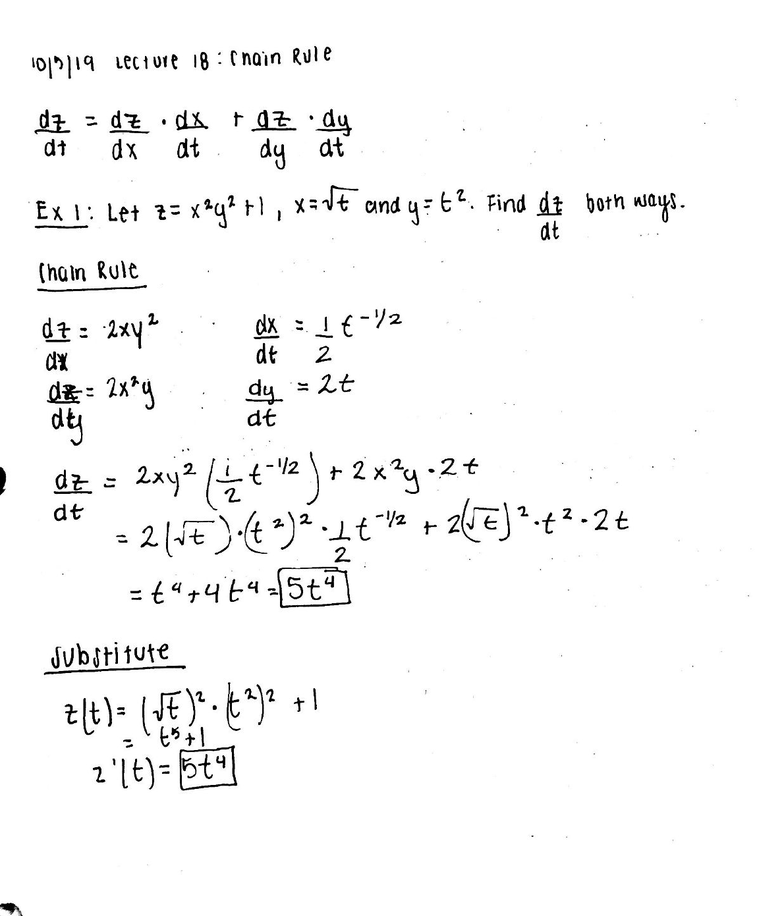 10/7/19 Lecture 18: Chain Rule
dz/dt = dz/dx · dx/dt + dz/dy · dy/dt
Ex 1: Let z = x²y² + 1, x = √t and y = t². Find dz/dt both ways.
Chain Rule
dz/dx = 2xy² dx/dt = 1/2 t^(-1/2)
dz/dy = 2x²y dy/dt = 2t
dz/dt = 2xy² (1/2 t^(-1/2)) + 2x²y · 2t
= 2(√t)·(t²)² · 1/2 t^(-1/2) + 2(√t)² · t² · 2t
= t⁴ + 4t⁴ = 5t⁴
Substitute
z(t) = (√t)² · (t²)² + 1
= t⁵ + 1
z'(t) = 5t⁴